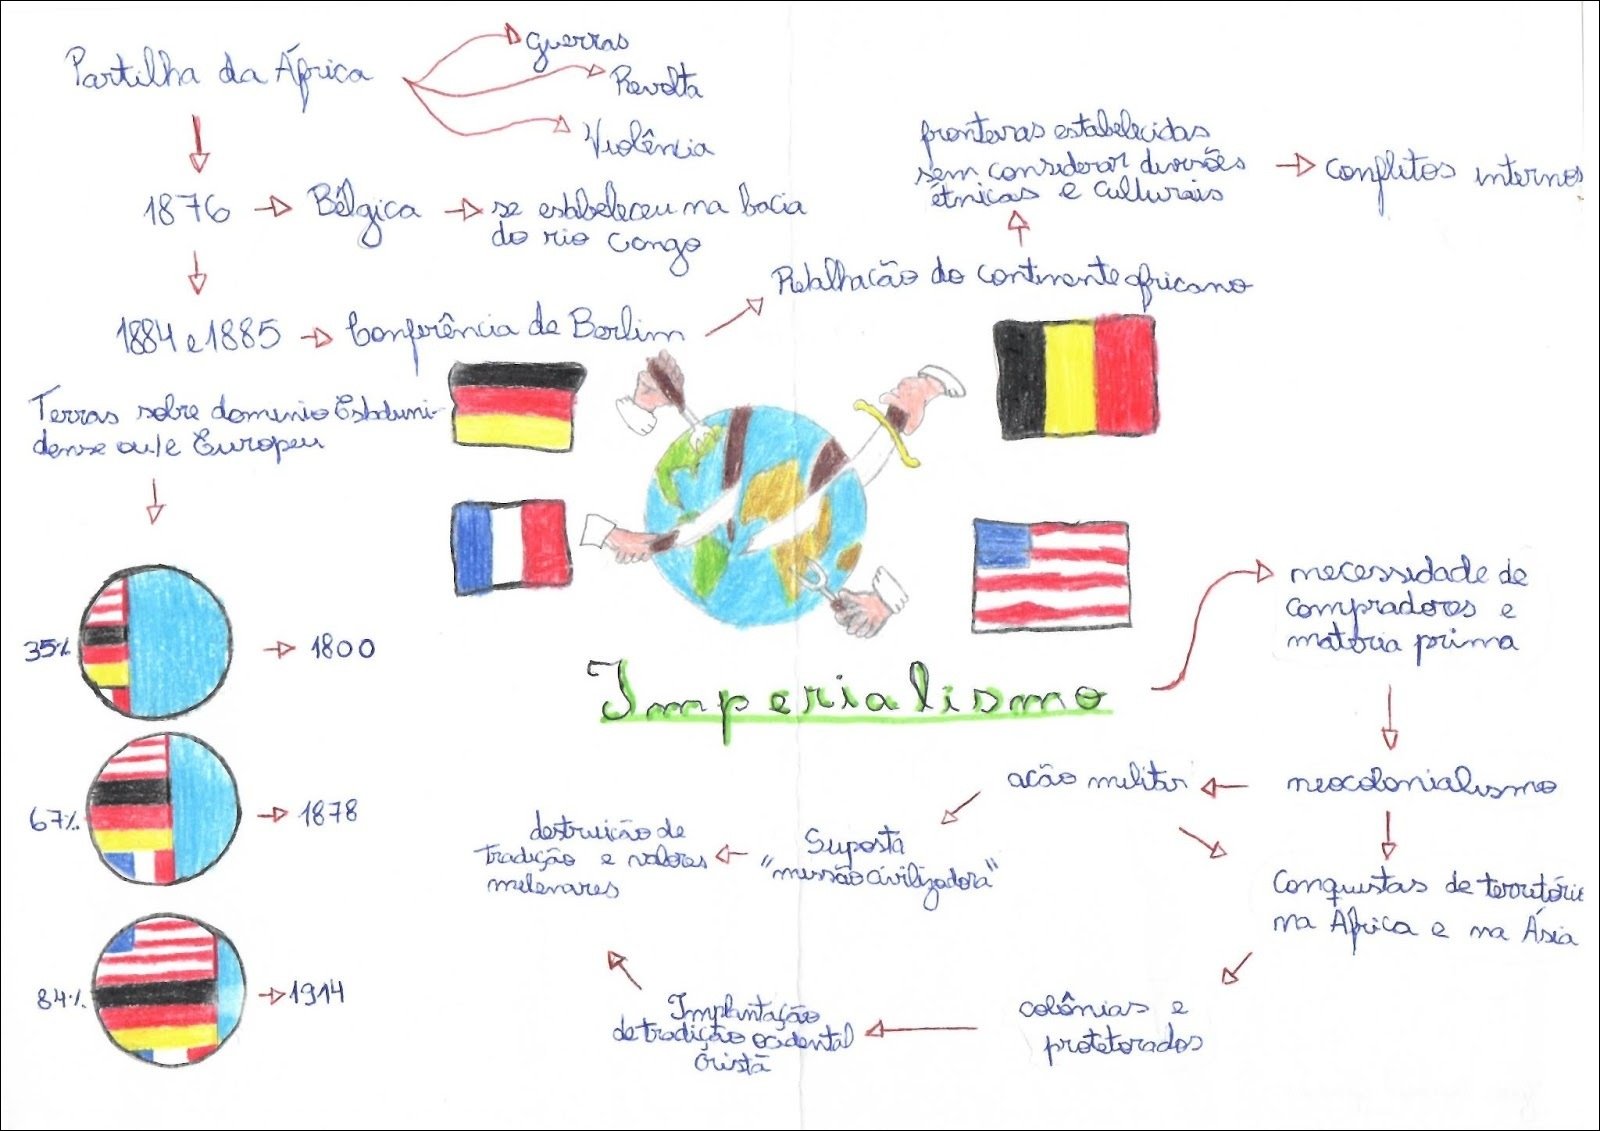 Partilha da África
guerras
Revolta
Violência
1876
Bélgica
se estabeleceu na bacia
do rio Congo
1884 e 1885
Conferência de Berlim
Retalhacão do continente africano
fronteiras estabelecidas
sem considerar divisões
étnicas e culturais
conflitos internos
Terras sobre dominio Estduni-
dense ou/e Europeu
35%
1800
67%
1878
84%
1914
Imperialismo
necessidade de
compradores e
matéria prima
neocolonialismo
acão militar
Suposta
"missão civilizadora"
destruição de
tradição e valores
milenares
Conquistas de território
na África e na Ásia
colônias e
protetorados
Implantação
de tradição ocidental
Cristã